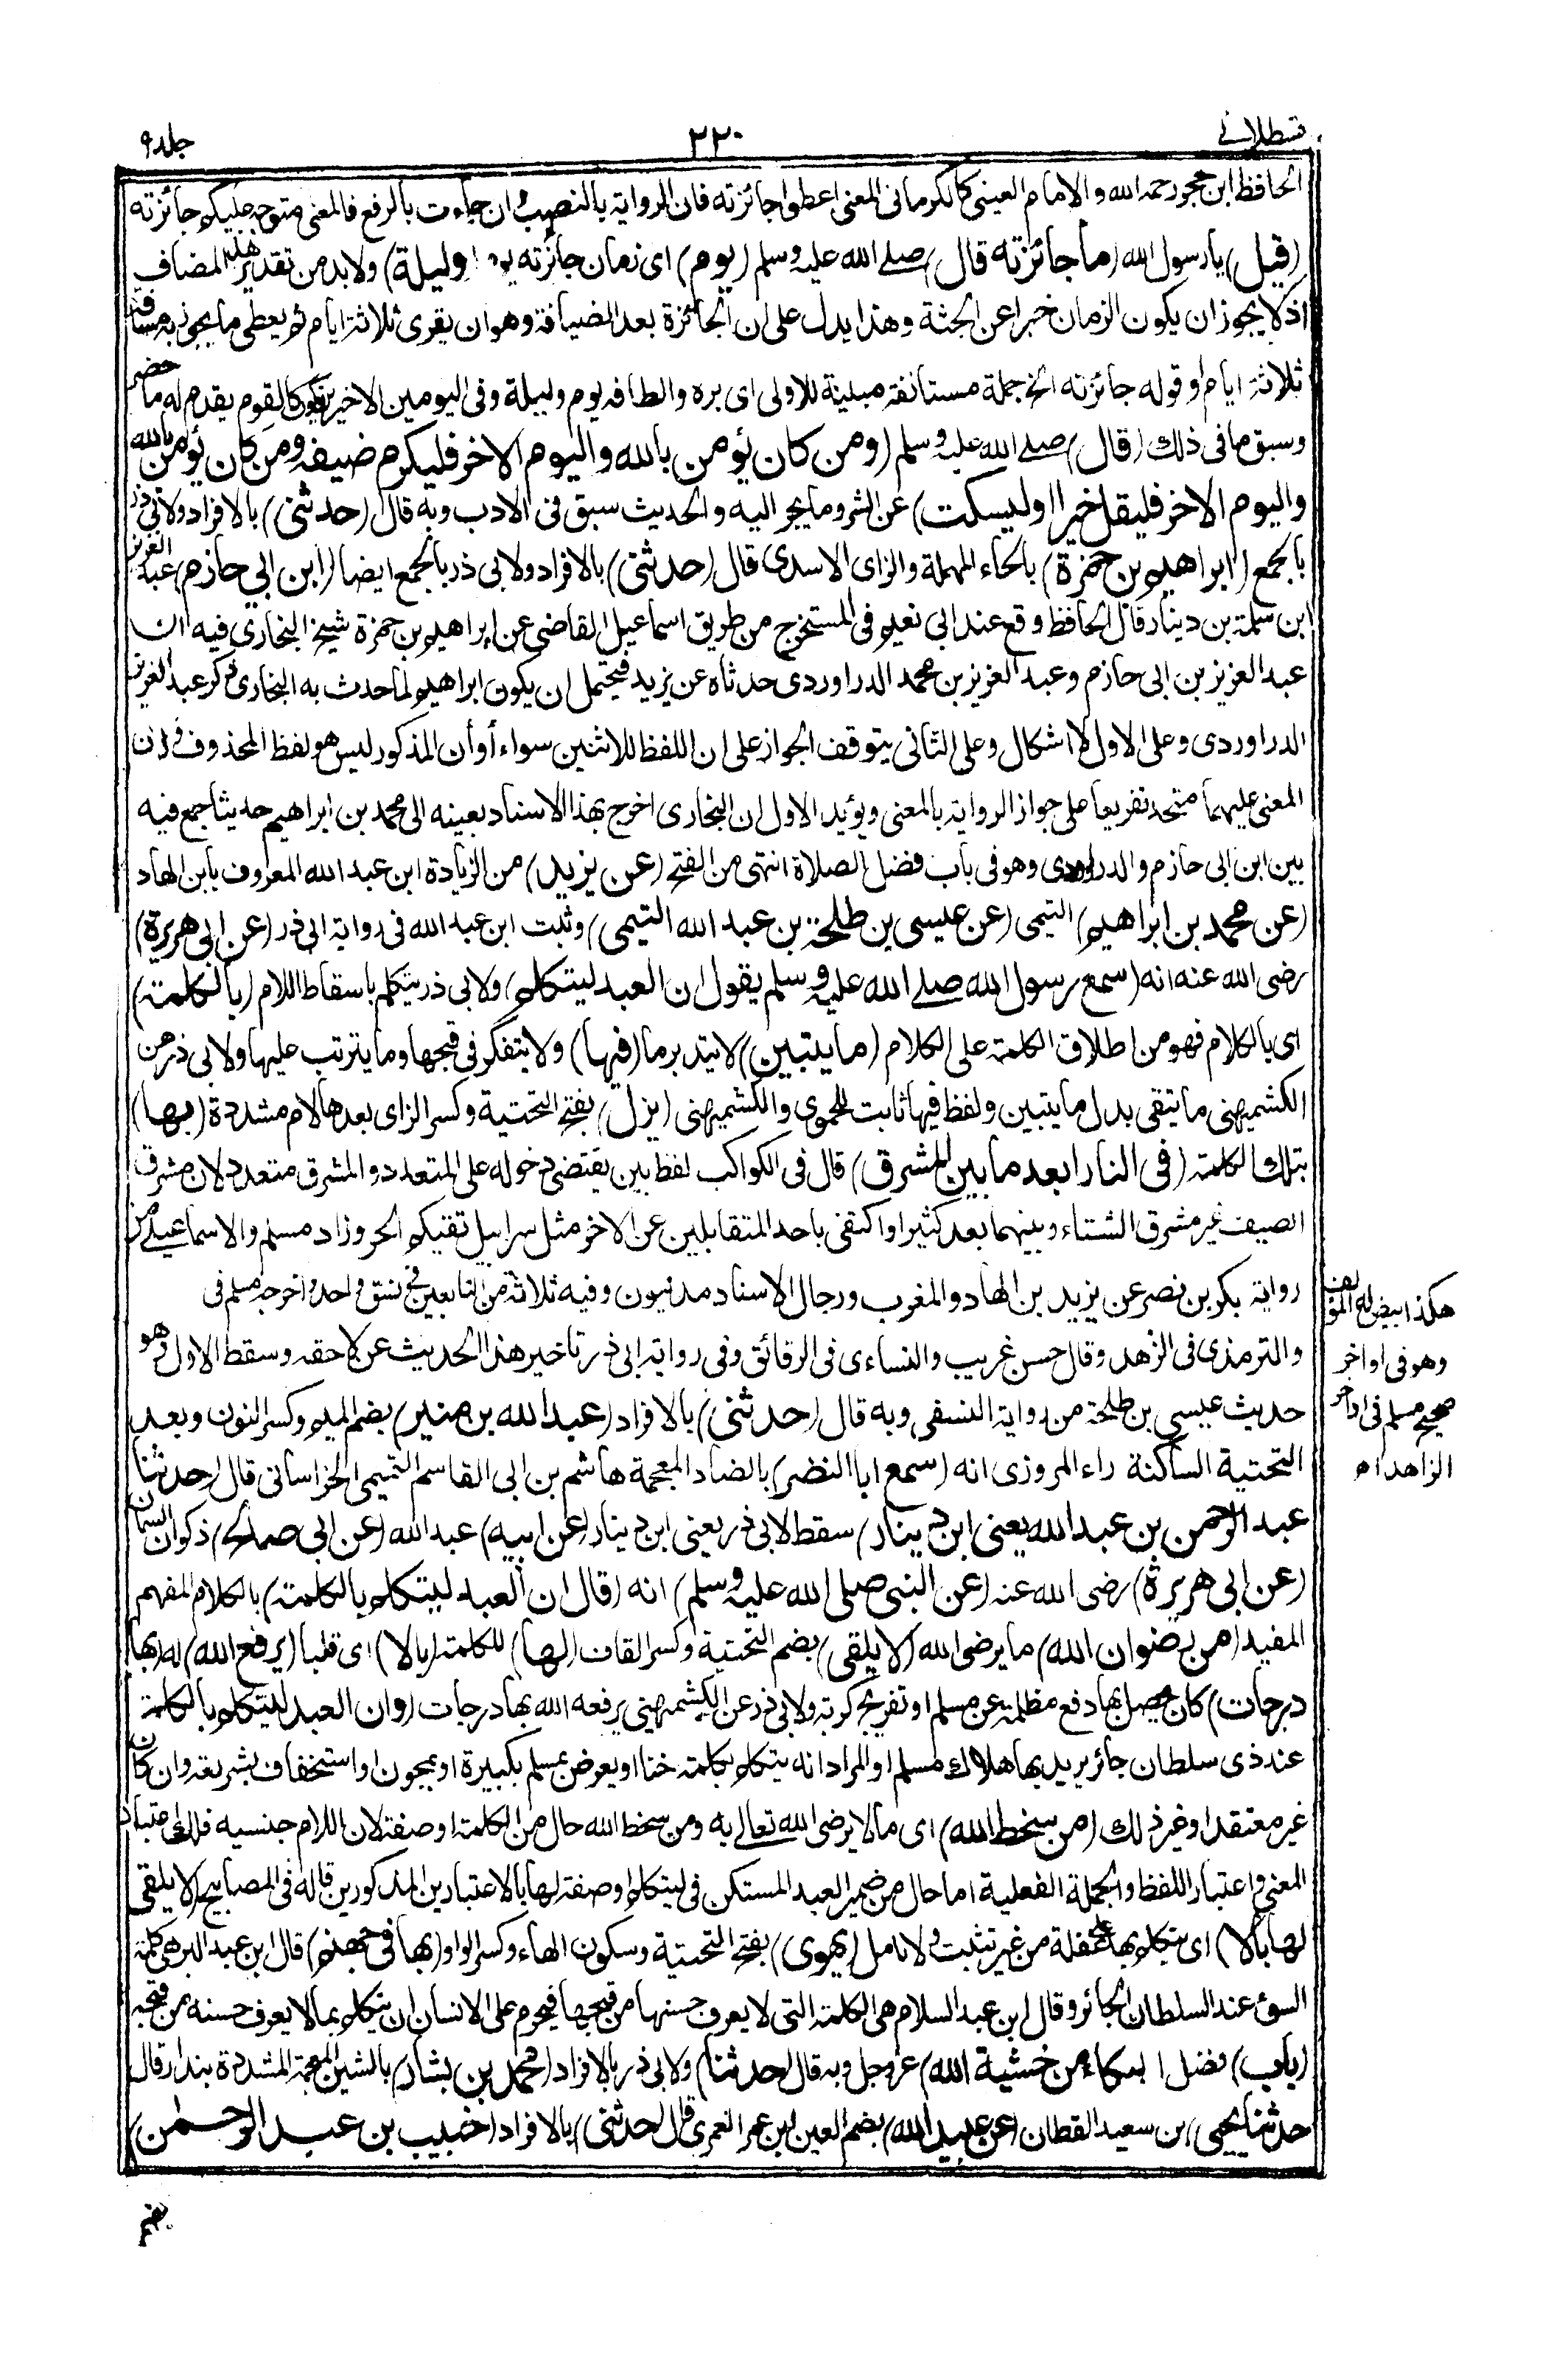 قسطلاني
٢٢٠
جلد ٩
الحافظ ابن حجر رحمه الله والامام العيني كالكرماني المعنى اعطوا جائزته فان الرواية بالنصب وان جاءت بالرفع فالمعنى متوجه عليكم جائزته
(قيل) يارسول الله (ما جائزته قال) صلے الله عليه وسلم (يوم) اى زمان جائزته يوم (وليلة) ولابد من تقدير هذا المضاف
اذ لا يجوز ان يكون الزمان خبرا عن الجثة وهذا يدل على ان الجائزة بعد الضيافة وهو ان يقرى ثلاثة ايام ثم يعطى ما يجوز به مسافة
ثلاثة ايام او قوله جائزته الخ جملة مستانفة مبينة للاولى اى بره والطافه يوم وليلة وفى اليومين الاخيرين يكون كالقوم يقدم له ما حضر
وسبق ما فى ذلك (قال) صلے الله عليه وسلم (ومن كان يؤمن بالله واليوم الاخر فليكرم ضيفه ومن كان يؤمن بالله
واليوم الاخر فليقل خيرا او ليسكت) عن الشر وما يجر اليه والحديث سبق فى الادب وبه قال (حدثنى) بالافراد ولابى ذر
بالجمع (ابراهيم بن حمزة) بالحاء المهملة والزاى الاسدى قال (حدثنى) بالافراد ولابى ذر بالجمع ايضا (ابن ابي حازم) عبد العزيز
ابن سلمة بن دينار قال الحافظ وقع عند ابى نعيم فى المستخرج من طريق اسماعيل القاضى عن ابراهيم بن حمزة شيخ البخارى فيه ان
عبد العزيز بن ابى حازم وعبد العزيز بن محمد الدراوردى حدثاه عن يزيد فيحتمل ان يكون ابراهيم لما حدث به البخارى ذكر عبد العزيز
الدراوردى وعلى الاول لا اشكال وعلى الثانى يتوقف الجواز على ان اللفظ للاثنين سواء أو أن المذكور ليس هو لفظ المحذوف وان
المعنى عليهما متحد تفريعا على جواز الرواية بالمعنى ويؤيد الاول ان البخارى اخرج بهذا الاسناد بعينه الى محمد بن ابراهيم حديثا جمع فيه
بين ابن ابى حازم والدراوردى وهو فى باب فضل الصلاة انتهى من الفتح (عن يزيد) من الزيادة ابن عبد الله المعروف بابن الهاد
(عن محمد بن ابراهيم) التيمى (عن عيسى بن طلحة بن عبد الله التيمى) وثبت ابن عبد الله فى رواية ابى ذر (عن ابى هريرة)
رضى الله عنه انه (سمع رسول الله صلے الله عليه وسلم يقول ان العبد ليتكلم) ولابى ذر يتكلم باسقاط اللام (بالكلمة)
اى بالكلام فهو من اطلاق الكلمة على الكلام (ما يتبين) لا يتدبر ما (فيها) ولا يتفكر فى قبحها وما يترتب عليها ولابى ذر عن
الكشميهنى ما يتقى بدل ما يتبين ولفظ فيها ثابت للحموى والكشميهنى (يزل) بفتح التحتية وكسر الزاى بعدها لام مشددة (بها)
بتلك الكلمة (فى النار ابعد ما بين المشرق) قال فى الكواكب لفظ بين يقتضى دخوله على المتعدد والمشرق متعدد لان مشرق
الصيف غير مشرق الشتاء وبينهما بعد كثير او اكتفى باحد المتقابلين عن الاخر مثل سرابيل تقيكم الحر وزاد مسلم والاسماعيلے من
رواية بكر بن نصر عن يزيد بن الهاد والمغرب ورجال الاسناد مدنيون وفيه ثلاثة من التابعين فى نسق واحد واخرجه مسلم فى
والترمذى فى الزهد وقال حسن غريب والنساءى فى الرقائق وفى رواية ابى ذر تاخير هذا الحديث عن لاحقه وسقط الاول وهو
حديث عيسى بن طلحة من رواية النسفى وبه قال (حدثنى) بالافراد (عبد الله بن منير) بضم الميم وكسر النون وبعد
التحتية الساكنة راء المروزى انه (سمع ابا النضر) بالضاد المعجمة هاشم بن ابى القاسم التميمى الخراسانى قال (حدثنا
عبد الرحمن بن عبد الله يعنى ابن دينار) سقط لابى ذر يعنى ابن دينار (عن ابيه) عبد الله (عن ابى صالح) ذكوان السمان
(عن ابى هريرة) رضى الله عنه (عن النبى صلى الله عليه وسلم) انه (قال ان العبد ليتكلم بالكلمة) بالكلام المفهم
المفيد (من رضوان الله) ما يرضى الله (لا يلقى) بضم التحتية وكسر القاف (لها) للكلمة (بالا) اى قلبا (يرفع الله) له (بها
درجات) كان يحصل بها دفع مظلمة عن مسلم او تفريج كربة ولابى ذر عن الكشميهنى يرفعه الله بها درجات (وان العبد ليتكلم بالكلمة
عند ذى سلطان جائر يريد بها هلاك مسلم او المراد انه يتكلم بكلمة خنا او يعرض بمسلم بكبيرة او بمجون او استخفاف بشريعة وان كان
غير معتقد او غير ذلك (من سخط الله) اى ما لا يرضى الله تعالے به ومن سخط الله حال من الكلمة او صفة لان اللام جنسيه فلها اعتبار
المعنى واعتبار اللفظ والجملة الفعلية اما حال من ضمير العبد المستكن فى ليتكلم او صفة لها بالاعتبارين المذكورين قاله فى المصابيح (لا يلقى
لها بالا) اى يتكلم بها على غفلة من غير تثبت ولا تامل (يهوى) بفتح التحتية وسكون الهاء وكسر الواو (بها فى جهنم) قال ابن عبد البر هى كلمة
السوئ عند السلطان الجائر وقال ابن عبد السلام هى الكلمة التى لا يعرف حسنها من قبحها فيحرم على الانسان ان يتكلم بما لا يعرف حسنه من قبحه
(باب) فضل البكاء من خشية الله) عز وجل وبه قال (حدثنا) ولابى ذر بالافراد (محمد بن بشار) بالشين المعجمة المشددة بندار قال
حدثنا يحيى) بن سعيد القطان (عن عبيد الله) بضم العين ابن عمر العمرى قال (حدثنى) بالافراد (خبيب بن عبد الرحمن)
هكذا بيض له المؤلف
وهو فى اواخر
صحيح مسلم فى اواخر
الزاهد اه